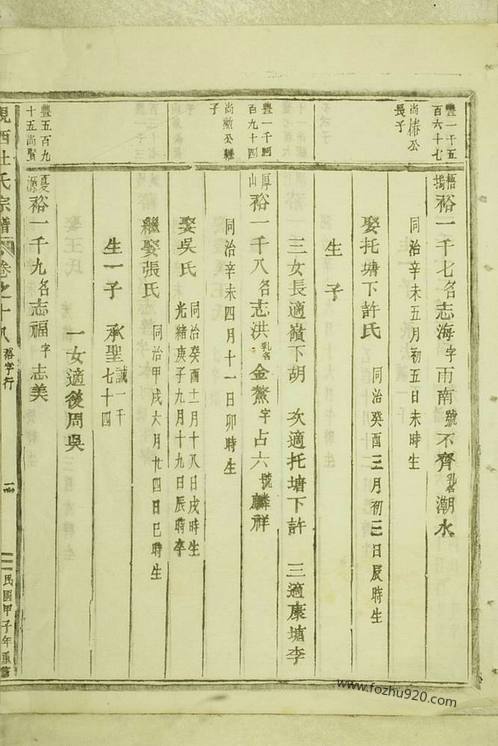 豐一千五
百六十七
尚椿公
長子
梧塢
裕一千七名志海字雨南號不齊乳名潮水
同治辛未五月初五日未時生
娶托塘下許氏
同治癸酉三月初三日辰時生
生 子
三女長適嶺下胡 次適托塘下許 三適康塘李
豐一千四
百九十四
尚勲公繼
子
厚山
裕一千八名志洪乳名金鰲字占六號麟祥
同治辛未四月十一日卯時生
娶吳氏
同治癸酉十一月十八日戌時生
光緒庚子九月十九日辰時卒
繼娶張氏
同治甲戌六月廿四日巳時生
生一子 承聖
誠一千
七十四
一女適後周吳
豐五百九
十五尚賢
夏源
裕一千九名志福字志美
西杜氏宗譜
卷之十八
裕字行
民國甲子年重修
www.fozhu920.com